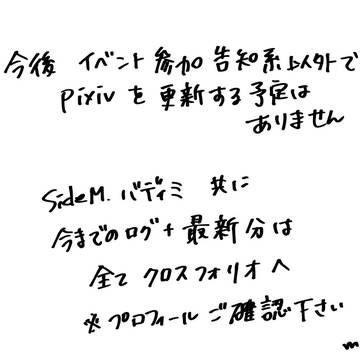 今後 イベント参加告知系以外で
pixivを更新する予定は
ありません
SideM. バディミ 共に
今までのログ+最新分は
全てクロスフォリオへ
※プロフィールご確認下さい
m